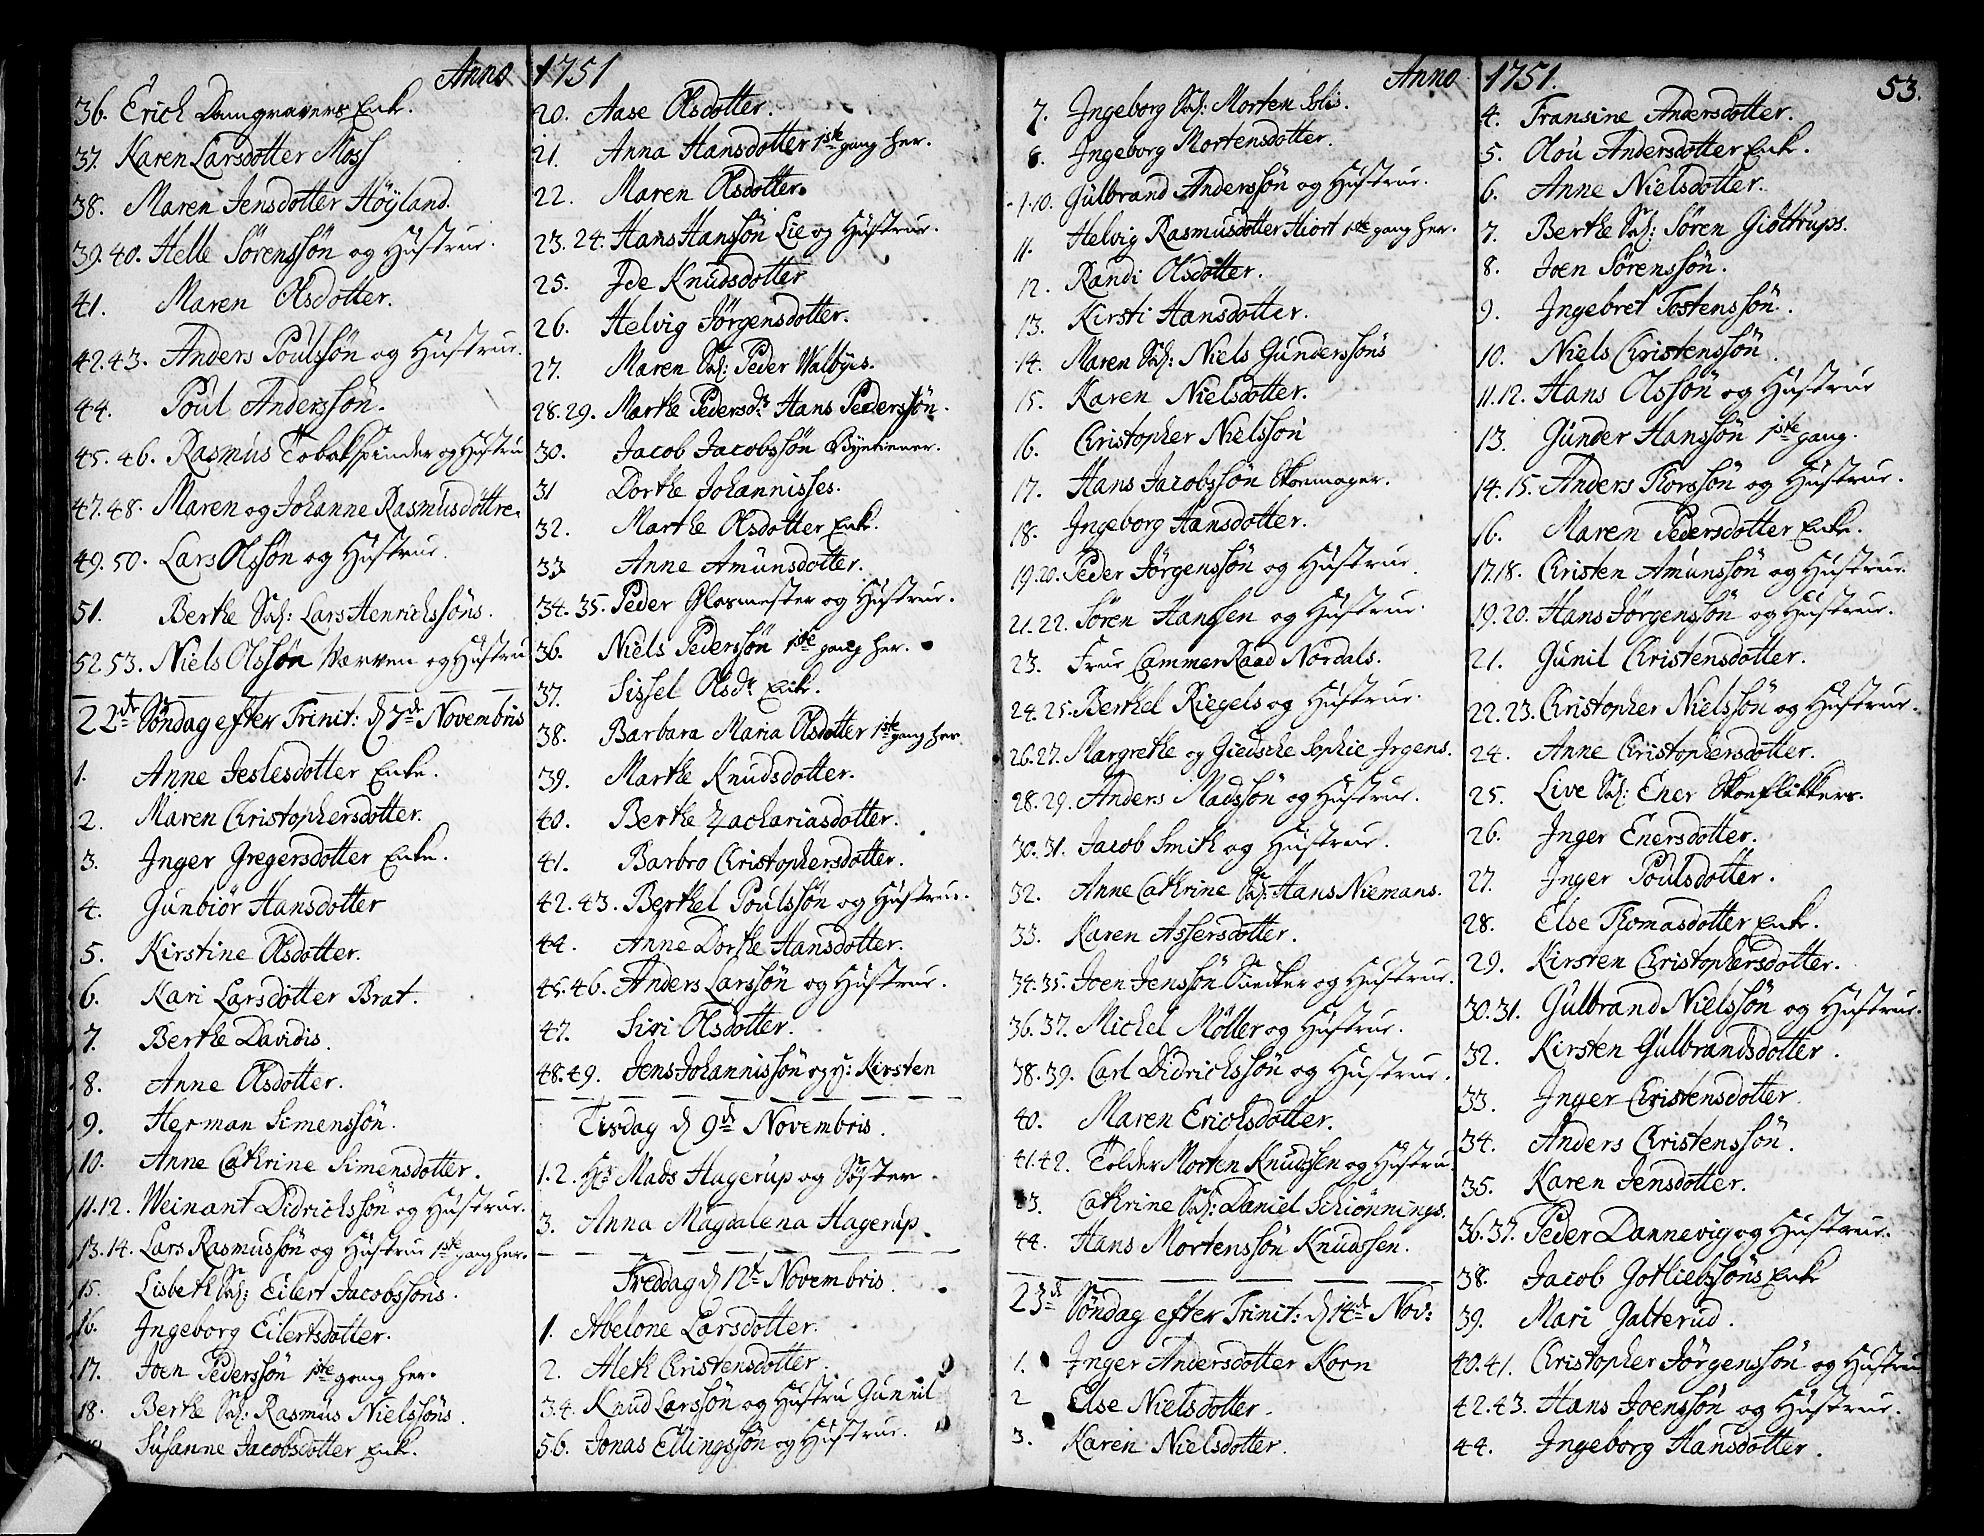 Anno 1751
36. Erich Damgravers Enke.
37. Karen Larsdotter Moss
38. Maren Jensdotter Höyland.
39.40. Helle Sörenssön og Hustrue.
41. Maren Olsdotter.
42.43. Anders Poulssön og Hustrue.
44. Poul Anderssön.
45.46. Rasmus Tobakspinder og Hustru
47.48. Maren og Johanne Rasmusdöttre.
49.50. Lars Olssön og Hustrue.
51. Berthe Sal: Lars Henrichssöns.
52.53. Niels Olssön Værven og Hustru
22de Söndag efter Trinit: d 7de Novembris
1. Anne Jeslesdotter Enke.
2. Maren Christophersdotter.
3. Inger Gregersdotter Enke.
4. Gunbiör Hansdotter
5. Kirstine Olsdotter.
6. Kari Larsdotter Brat.
7. Berthe Davidis.
8. Anne Olsdotter.
9. Herman Simenssön.
10. Anne Cathrine Simensdotter.
11.12. Weinant Didrichssön og Hustrue.
13.14. Lars Rasmussön og Hustrue 1ste gang her.
15. Lisbeth Sal: Eilert Jacobssöns.
16. Ingeborg Eilertsdotter.
17. Joen Pederssön 1ste gang her.
18. Berthe Sal: Rasmus Nielssöns.
Susanne Jacobsdotter Enke.
20. Aase Olsdotter.
21. Anna Hansdotter 1ste gang her.
22. Maren Olsdotter.
23.24. Hans Hanssön Lie og Hustrue.
25. Ide Knudsdotter
26. Helvig Jörgensdotter.
27. Maren Sal: Peder Walbyes.
28.29. Marthe Pedersdr Hans Pederssön.
30. Jacob Jacobssön Byetiener.
31 Dorthe Johannisses.
32. Marthe Olsdotter Enke.
33 Anne Amunsdotter.
34.35. Peder Glasmester og Hustrue.
36. Niels Pederssön 1ste gang her.
37. Sissel Olsdr Enke.
38. Barbara Maria Olsdotter 1ste gang her.
39. Marthe Knudsdotter.
40. Berthe Zachariasdotter.
41. Barbro Christophersdotter.
42.43. Berthel Poulssön og Hustrue.
44. Anne Dorthe Hansdotter.
45.46. Anders Larssön og Hustrue.
47. Siri Olsdotter.
48.49. Jens Johannissön og H: Kirsten
Tisdag d 9de Novembris.
1.2. Hr Mads Hagerup og Söster.
3. Anna Magdalena Hagerup.
Fredag d 12te Novembris.
1. Abelone Larsdotter.
2. Aleth Christensdotter.
3.4. Knud Larssön og Hustru Gunnil
5.6. Jonas Ellingssön og Hustrue.
Anno 1751. 53.
7. Ingeborg Sal: Morten Solis.
8. Ingeborg Mortensdotter.
10. Gulbrand Anderssön og Hustrue.
11. Helvig Rasmusdotter Hiort 1ste gang her.
12. Randi Olsdotter.
13. Kirsti Hansdotter.
14. Maren Sal: Niels Gunderssöns
15. Karen Nielsdotter.
16. Christopher Nielssön
17. Hans Jacobssön Skoemager.
18. Ingeborg Hansdotter.
19.20. Peder Jörgenssön og Hustrue.
21.22. Sören Hanssen og Hustrue.
23. Frue CammerRaad Nordals.
24.25. Berthel Riegels og Hustrue.
26.27. Margrethe og Giedsche Sophie Irgens.
28.29. Anders Madssön og Hustrue.
30.31. Jacob Smith og Hustrue.
32. Anne Cathrine Sal: Hans Niemans.
33. Karen Assersdotter.
34.35. Joen Jenssön Snecker og Hustrue.
36.37. Michel Möller og Hustrue.
38.39. Carl Didrichssön og Hustrue.
40. Maren Erichsdotter.
41.42. Tolder Morten Knudssen og Hustru.
43. Cathrine Sal: Daniel Schiönnings.
44. Hans Mortenssön Knudssen.
23de Söndag efter Trinit: d 14de Nov:
1. Inger Andersdotter Korn
2 Else Nielsdotter.
3. Karen Nielsdotter.
4. Fransine Andersdotter.
5. Olou Andersdotter Enke.
6. Anne Nielsdotter.
7. Berthe Sal: Sören Giöttrups.
8. Joen Sörenssön.
9. Ingebret Tostenssön.
10. Niels Christenssön.
11.12. Hans Olssön og Hustrue
13. Gunder Hanssön 1ste gang.
14.15. Anders Thorssön og Hustrue.
16. Maren Pedersdotter Enke.
17.18. Christen Amunssön og Hustrue.
19.20. Hans Jörgenssön og Hustrue.
21. Gunil Christensdotter.
22.23. Christopher Nielssön og Hustrue.
24. Anne Christophersdotter.
25. Live Sal: Ener Skoeflikkers.
26. Inger Enersdotter.
27. Inger Poulsdotter.
28. Else Thomasdotter Enke.
29. Kirsten Christophersdotter.
30.31. Gulbrand Nielssön og Hustrue.
32. Kirsten Gulbrandsdotter.
33. Inger Christensdotter.
34. Anders Christenssön.
35. Karen Jensdotter.
36.37. Peder Dannevig og Hustrue.
38. Jacob Gotliebssöns Enke
39. Mari Galterud.
40.41. Christopher Jörgenssön og Hustrue
42.43. Hans Joenssön og Hustrue.
44. Ingeborg Hansdotter.